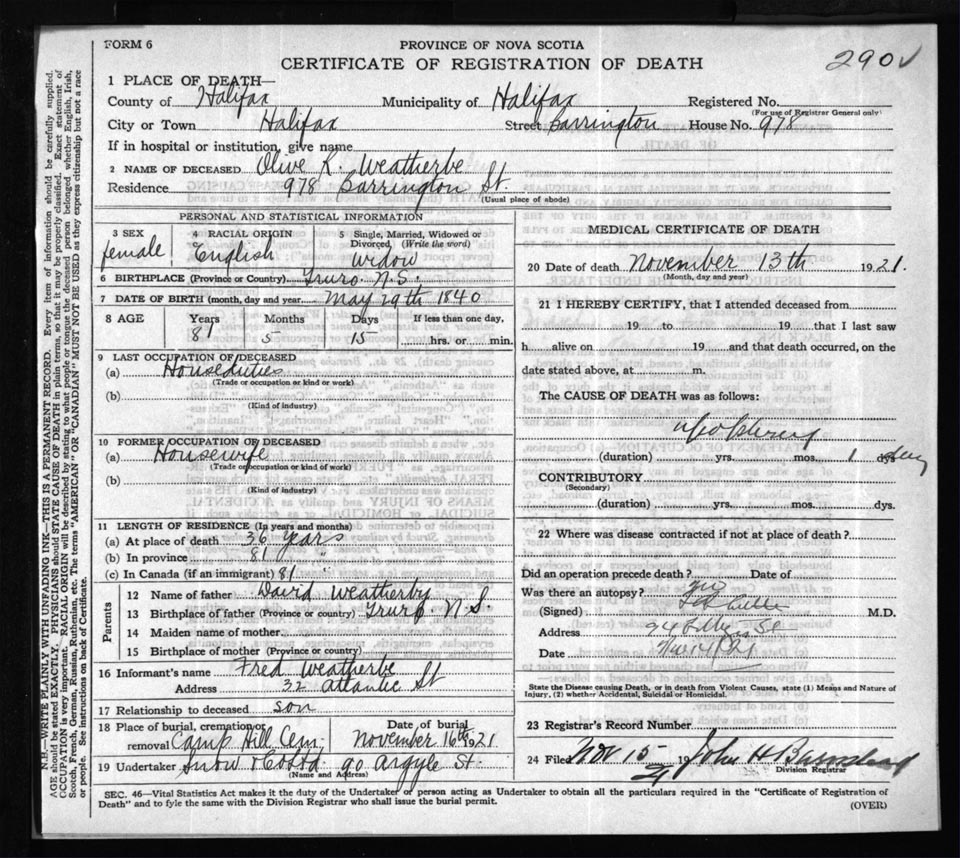 FORM 6
PROVINCE OF NOVA SCOTIA
290 ✓
CERTIFICATE OF REGISTRATION OF DEATH
1 PLACE OF DEATH—
County of Halifax Municipality of Halifax Registered No.
(For use of Registrar General only)
City or Town Halifax Street Barrington House No. 978
If in hospital or institution, give name
2 NAME OF DECEASED Olive R. Weatherbe
Residence 978 Barrington St.
(Usual place of abode)
PERSONAL AND STATISTICAL INFORMATION
3 SEX female
4 RACIAL ORIGIN English
5 Single, Married, Widowed or Divorced, (Write the word) widow
6 BIRTHPLACE (Province or Country) Truro N.S.
7 DATE OF BIRTH (month, day and year) May 29th 1840
8 AGE Years 81 Months 5 Days 15 If less than one day, hrs. or min.
9 LAST OCCUPATION OF DECEASED
(a) Houseduties
(Trade or occupation or kind or work)
(b)
(Kind of industry)
10 FORMER OCCUPATION OF DECEASED
(a) Housewife
(Trade or occupation or kind or work)
(b)
(Kind of industry)
11 LENGTH OF RESIDENCE (In years and months)
(a) At place of death 36 years
(b) In province 81 "
(c) In Canada (if an immigrant) 81 "
Parents
12 Name of father David Weatherby
13 Birthplace of father (Province or country) Truro N.S.
14 Maiden name of mother
15 Birthplace of mother (Province or country)
16 Informant's name Fred Weatherbe
Address 32 Atlantic St
17 Relationship to deceased son
18 Place of burial, cremation or removal Camp Hill Cem. Date of burial November 16th 1921
19 Undertaker Snow & Co Ltd 90 Argyle St.
(Name and Address)
MEDICAL CERTIFICATE OF DEATH
20 Date of death November 13th 1921.
(Month, day and year)
21 I HEREBY CERTIFY, that I attended deceased from
19 to 19 that I last saw
h alive on 19 and that death occurred, on the
date stated above, at m.
The CAUSE OF DEATH was as follows:
(duration) yrs. mos. 1 dys day
CONTRIBUTORY
(Secondary)
(duration) yrs. mos. dys.
22 Where was disease contracted if not at place of death?
Did an operation precede death? Date of
Was there an autopsy?
(Signed) M.D.
Address 94
Date Nov 14
State the Disease causing Death, or in death from Violent Causes, state (1) Means and Nature of
Injury, (2) whether Accidental, Suicidal or Homicidal.
23 Registrar's Record Number
24 Filed Nov 15 / 21 19 John H
Division Registrar
SEC. 46—Vital Statistics Act makes it the duty of the Undertaker or person acting as Undertaker to obtain all the particulars required in the "Certificate of Registration of
Death" and to fyle the same with the Division Registrar who shall issue the burial permit.
(OVER)
N.B.—WRITE PLAINLY WITH UNFADING INK—THIS IS A PERMANENT RECORD. Every item of information should be carefully supplied.
AGE should be stated EXACTLY. PHYSICIANS should STATE CAUSE OF DEATH in plain terms, so that it may be properly classified. Exact statement of
OCCUPATION is very important. RACIAL ORIGIN will be described by stating to what people or tongue the deceased person belonged whether English, Irish,
Scotch, French, German, Russian, Ruthenian, etc. The terms "AMERICAN" OR "CANADIAN" MUST NOT BE USED as they express citizenship but not a race
or people. See instructions on back of Certificate.